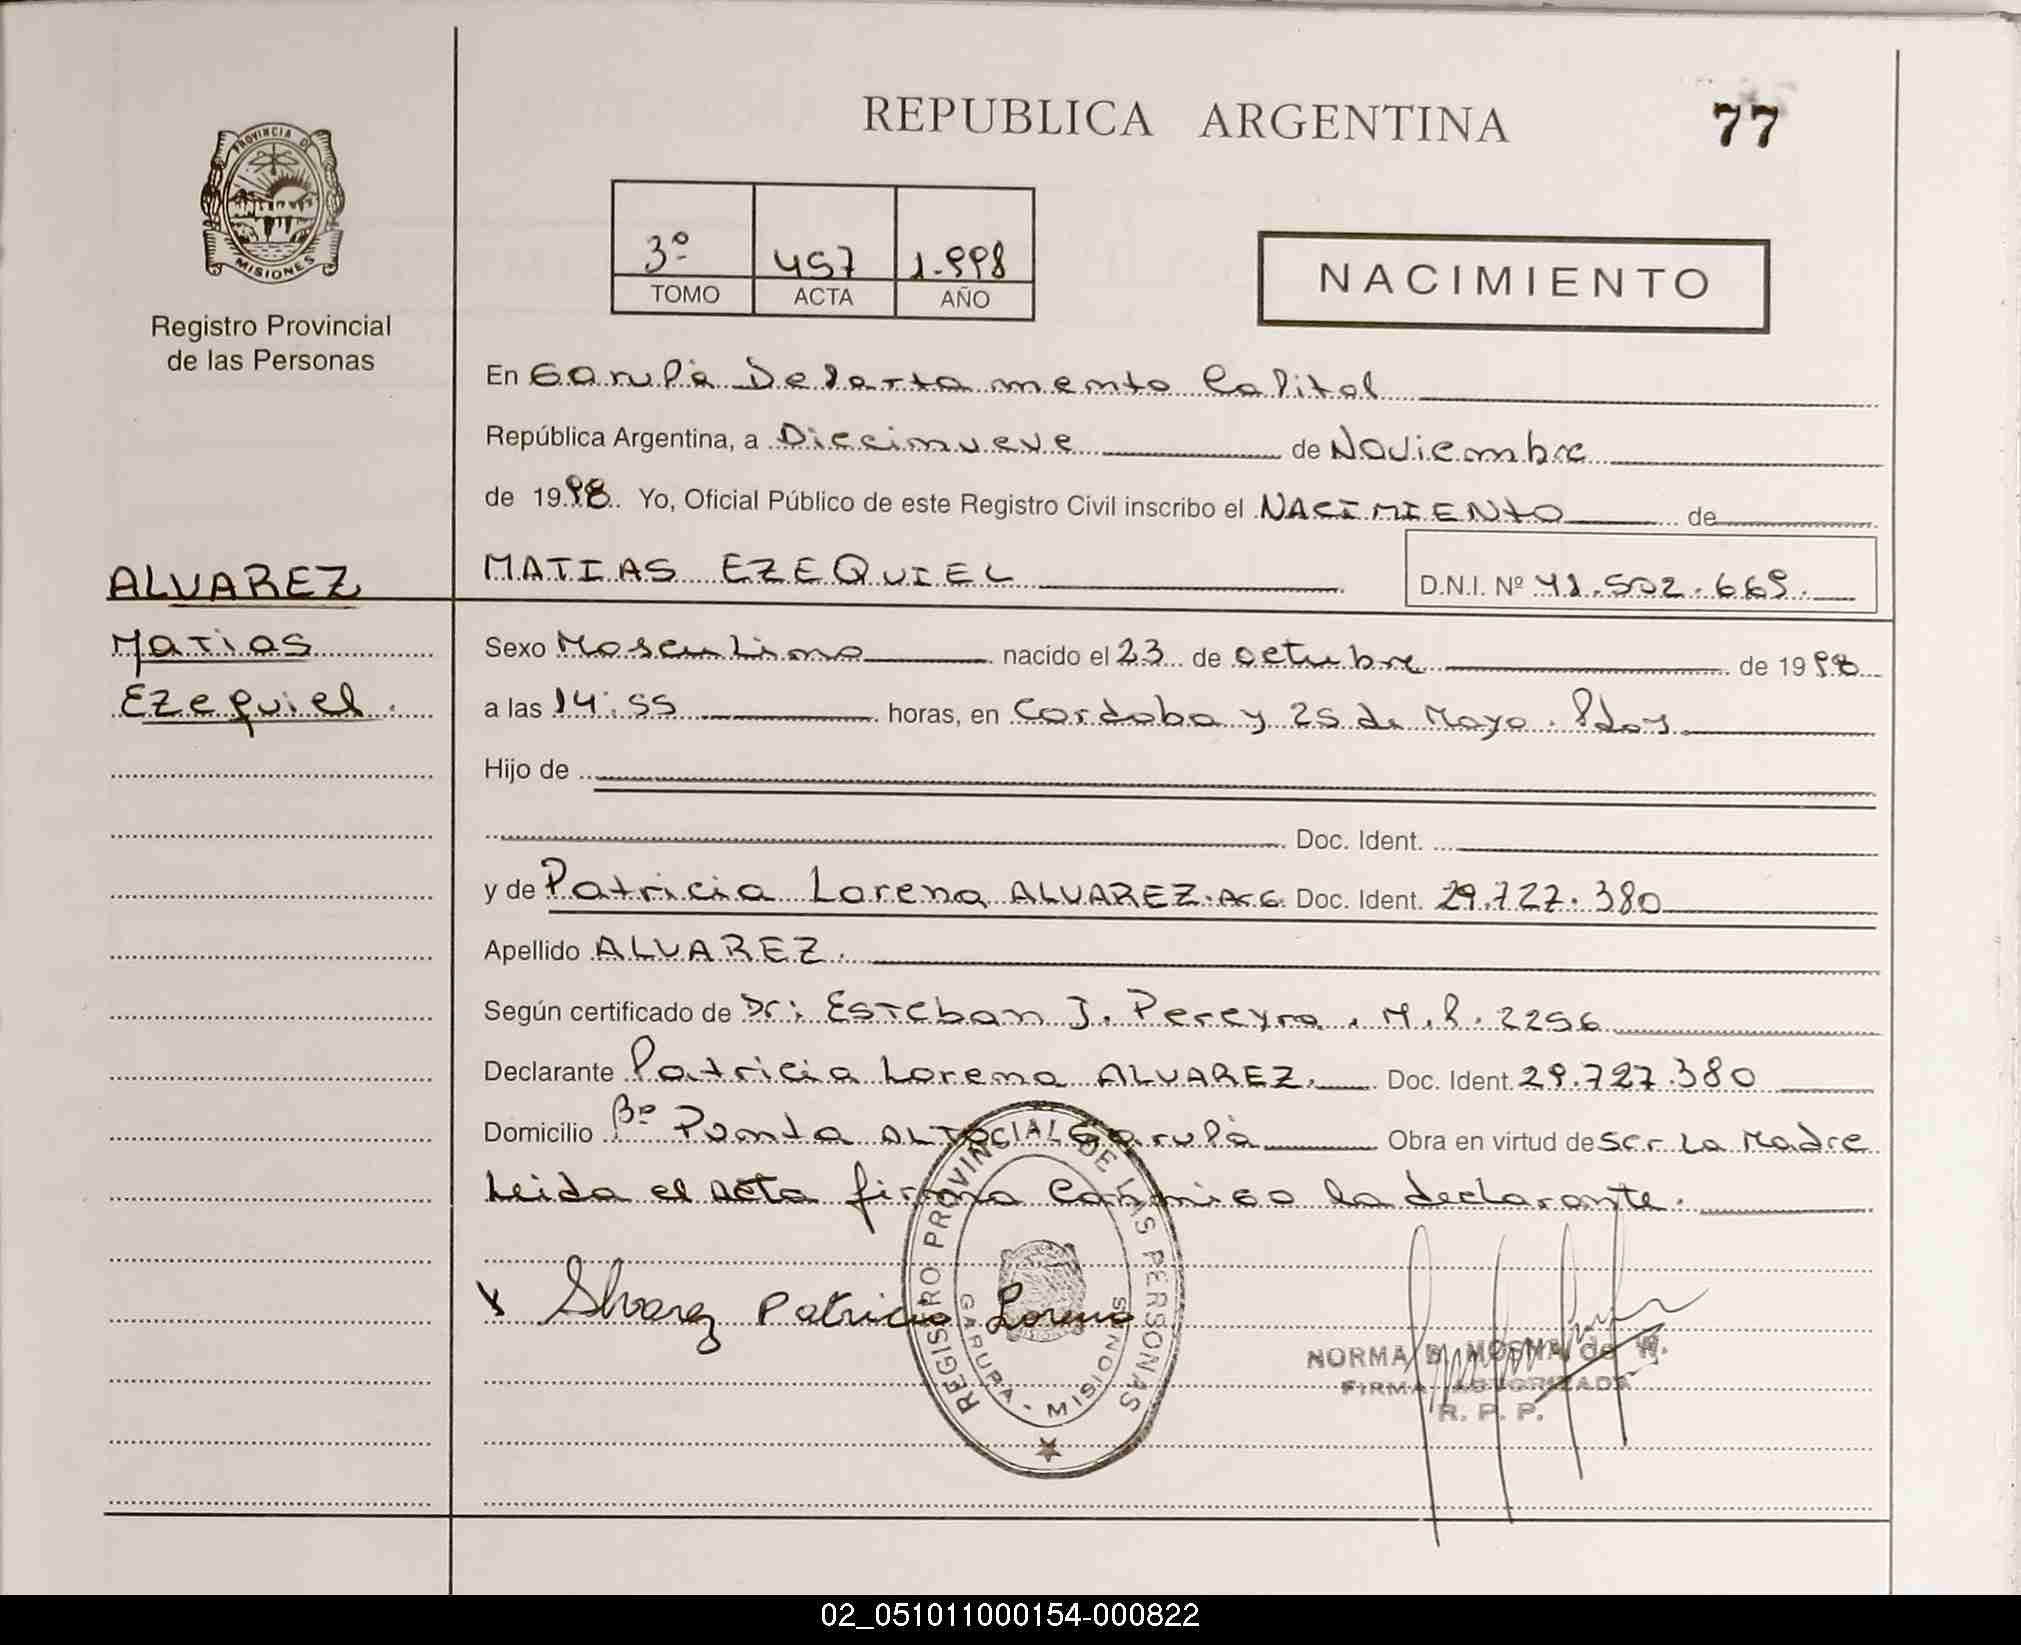 REPUBLICA ARGENTINA
77
PROVINCIA DE
MISIONES
Registro Provincial
de las Personas
3º 457 1.998
TOMO ACTA AÑO
NACIMIENTO
En Garupá Departamento Capital
República Argentina, a Diecinueve de Noviembre
de 1998. Yo, Oficial Público de este Registro Civil inscribo el NACIMIENTO de
ALVAREZ
Matias
Ezequiel.
MATIAS EZEQUIEL D.N.I. Nº 41.502.669.
Sexo Masculino nacido el 23 de octubre de 1998
a las 14:55 horas, en Cordoba y 25 de Mayo. Pdas.
Hijo de
Doc. Ident.
y de Patricia Lorena ALVAREZ. Arg. Doc. Ident. 29.727.380
Apellido ALVAREZ.
Según certificado de Dr: Esteban J. Pereyra. M.P. 2256
Declarante Patricia Lorena ALVAREZ. Doc. Ident. 29.727.380
Domicilio Bº Punta ALTA Garupá Obra en virtud de ser La Madre
Leida el acta firma conmigo la declarante.
x Alvarez Patricia Lorena
REGISTRO PROVINCIAL DE LAS PERSONAS
GARUPA - MISIONES
NORMA MOSNA de W.
FIRMA AUTORIZADA
R. P. P.
02_051011000154-000822